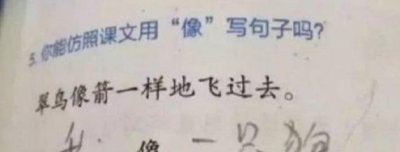 5.你能仿照课文用“像”写句子吗?
翠鸟像箭一样地飞过去。
像一只狗